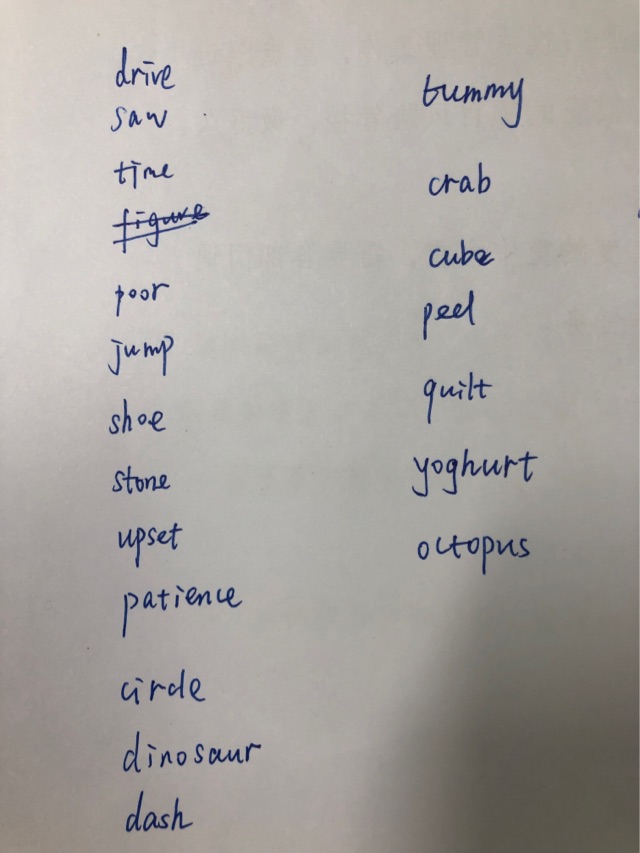 drive
saw
time
figure
poor
jump
shoe
stone
upset
patience
circle
dinosaur
dash
tummy
crab
cube
peel
quilt
yoghurt
octopus